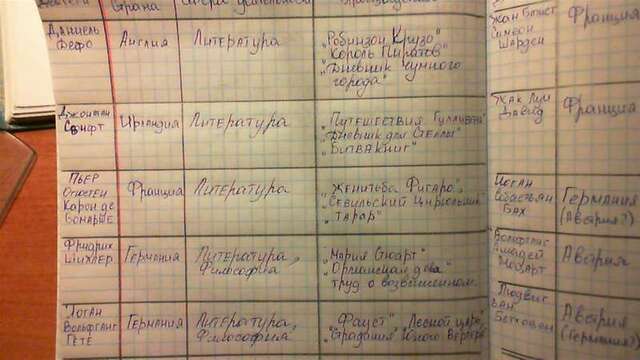 Страна
Даниель
Дефо
Англия
Литература
„Робинзон Крузо"
„Король Пиратов"
„Дневник чумного
города"
Джонатан
Свифт
Ирландия
Литература
„Путешествия Гулливера"
„Дневник для Стеллы"
„Битва книг"
Пьер
Огюстен
Карон де
Бомарше
Франция
Литература
„Женитьба Фигаро",
„Севильский цирюльник"
„Тарар"
Фридрих
Шиллер
Германия
Литература,
Философия
„Мария Стюарт"
„Орлеанская дева"
труд о возвышенном.
Йоган
Вольфганг
Гёте
Германия
Литература,
Философия
„Фауст" „Лесной царь"
„Страдания Юного Вертера"
Жан Батист
Симеон
Шарден
Франция
Жак Луи
Давид
Франция
Йоган
Себастьян
Бах
Германия
(Австрия?)
Вольфганг
Амадей
Моцарт
Австрия
Людвиг
ван
Бетховен
Австрия
(Германия?)